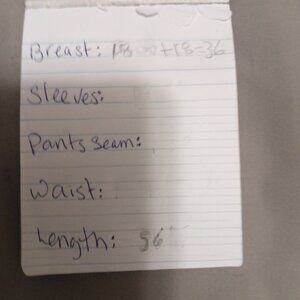 Breast: 18 + 18 = 36
Sleeves:
Pants seam:
Waist:
Length: 56